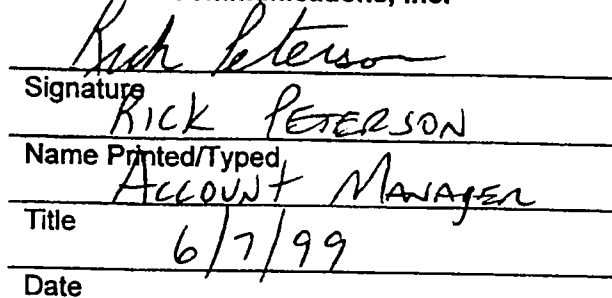 Rick Peterson
Signature
RICK PETERSON
Name Printed/Typed
ACCOUNT MANAGER
Title
6/7/99
Date